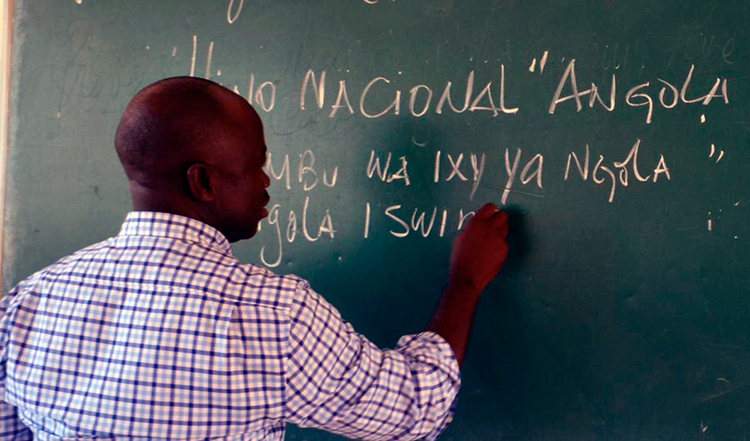 Hino NACiONAL "ANgolA,
MBU WA IXY YA NgolA"
golA ISWI